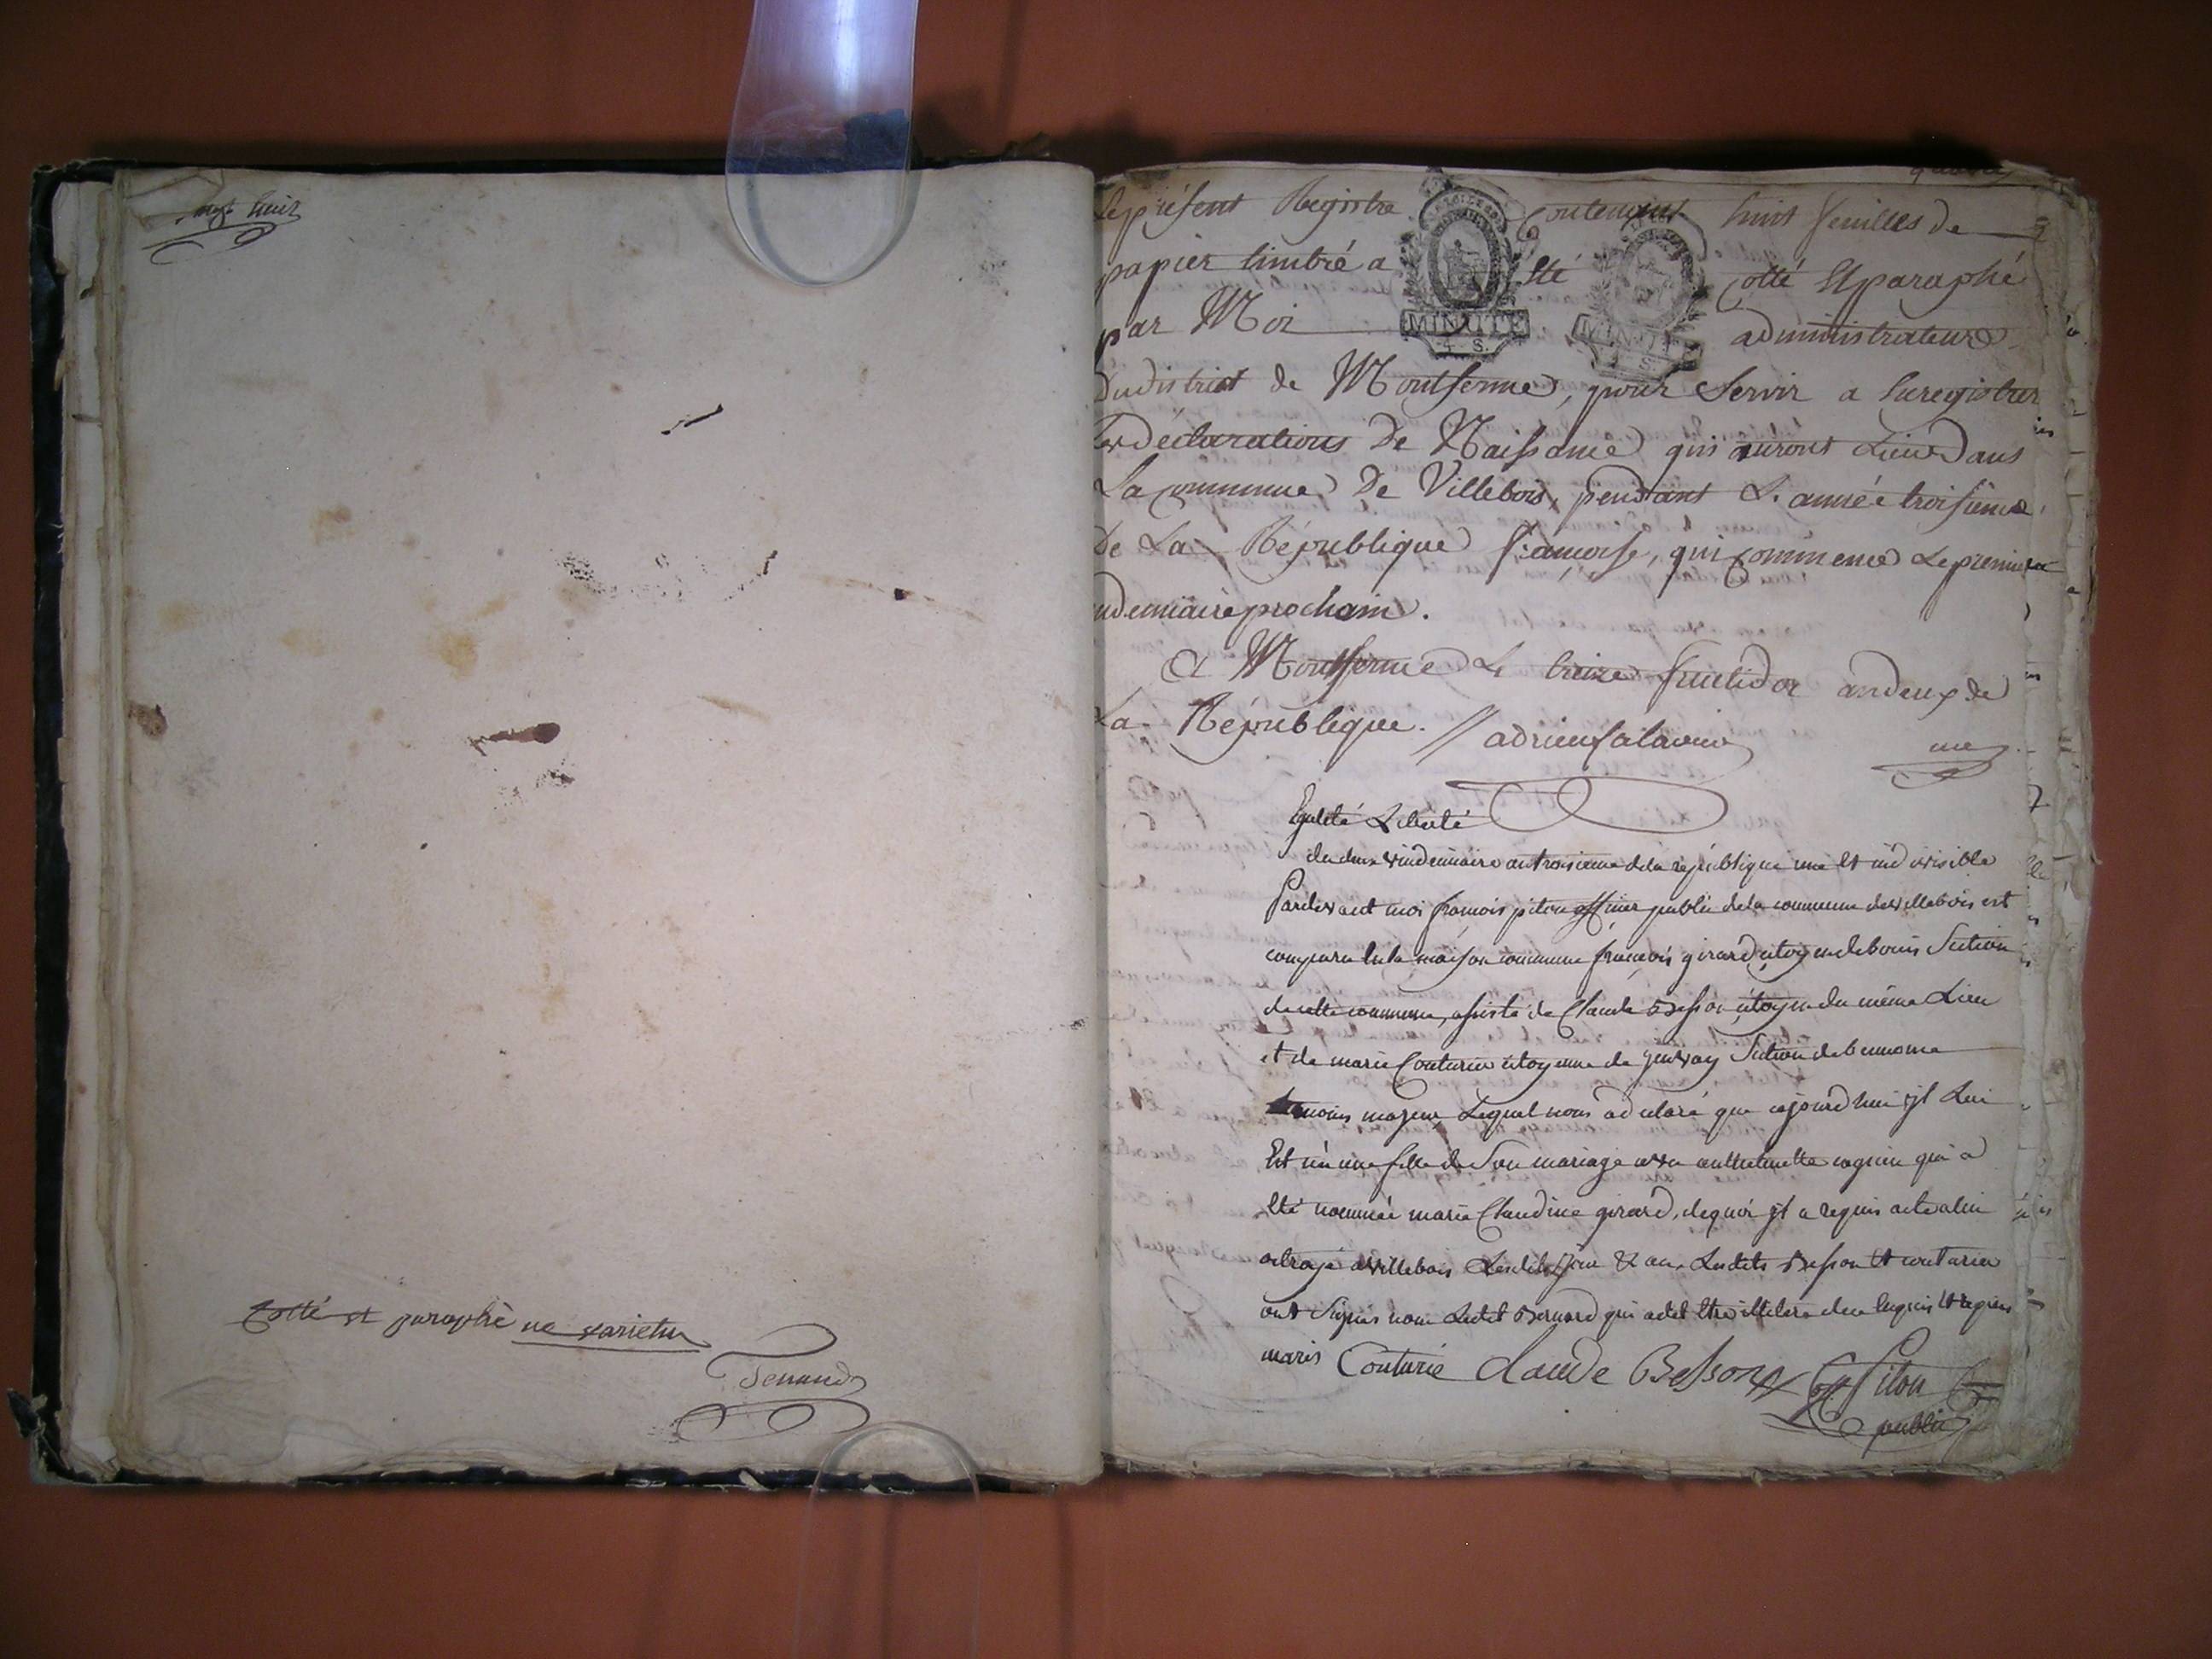 huit
Cotté et paraphé ne varietur
Tenand
Le présent Registre Contenant huit feuilles de
papier timbré a Eté Cotté Et paraphé
par Moi administrateur
Du district de Montferme, pour Servir a Enregistrer
Les déclarations de Naissance qui auront Lieu Dans
La Commune De Villebois, pendant L'année troisieme
De La République françoise, qui Commence Le premier
ndemiaire prochain.
A Montferme Le treize fructidor an deux de
La République. // adrien
une
MINUTE
4. S.
MINUTE
4 S.
Egalité Liberté
du deux vindemiaire an troisieme de la republique une Et indivisible
Pardevant moi francois piton officier public de la commune de villebois est
comparu En la maison commune francois girard citoyen de bouis Section
de cette commune, assisté de Claude Besson citoyen du même Lieu
et de marie Couturier citoyenne de Section de benonce
temoins majeur Lequel nous a déclaré que cejourdhui yl Lui
Est né une fille de Son mariage avec cagnin qui a
Eté nommée marie Claudine girard, de quoi yl a requis acte a lui
octroyé a villebois Lesdits jour & an. Lesdits Besson Et couturier
ont Signés non Ledit Bernard qui a dit Etre illiteré de ce Enquis Et requis
marie Couturié Claude Besson Piton
off public